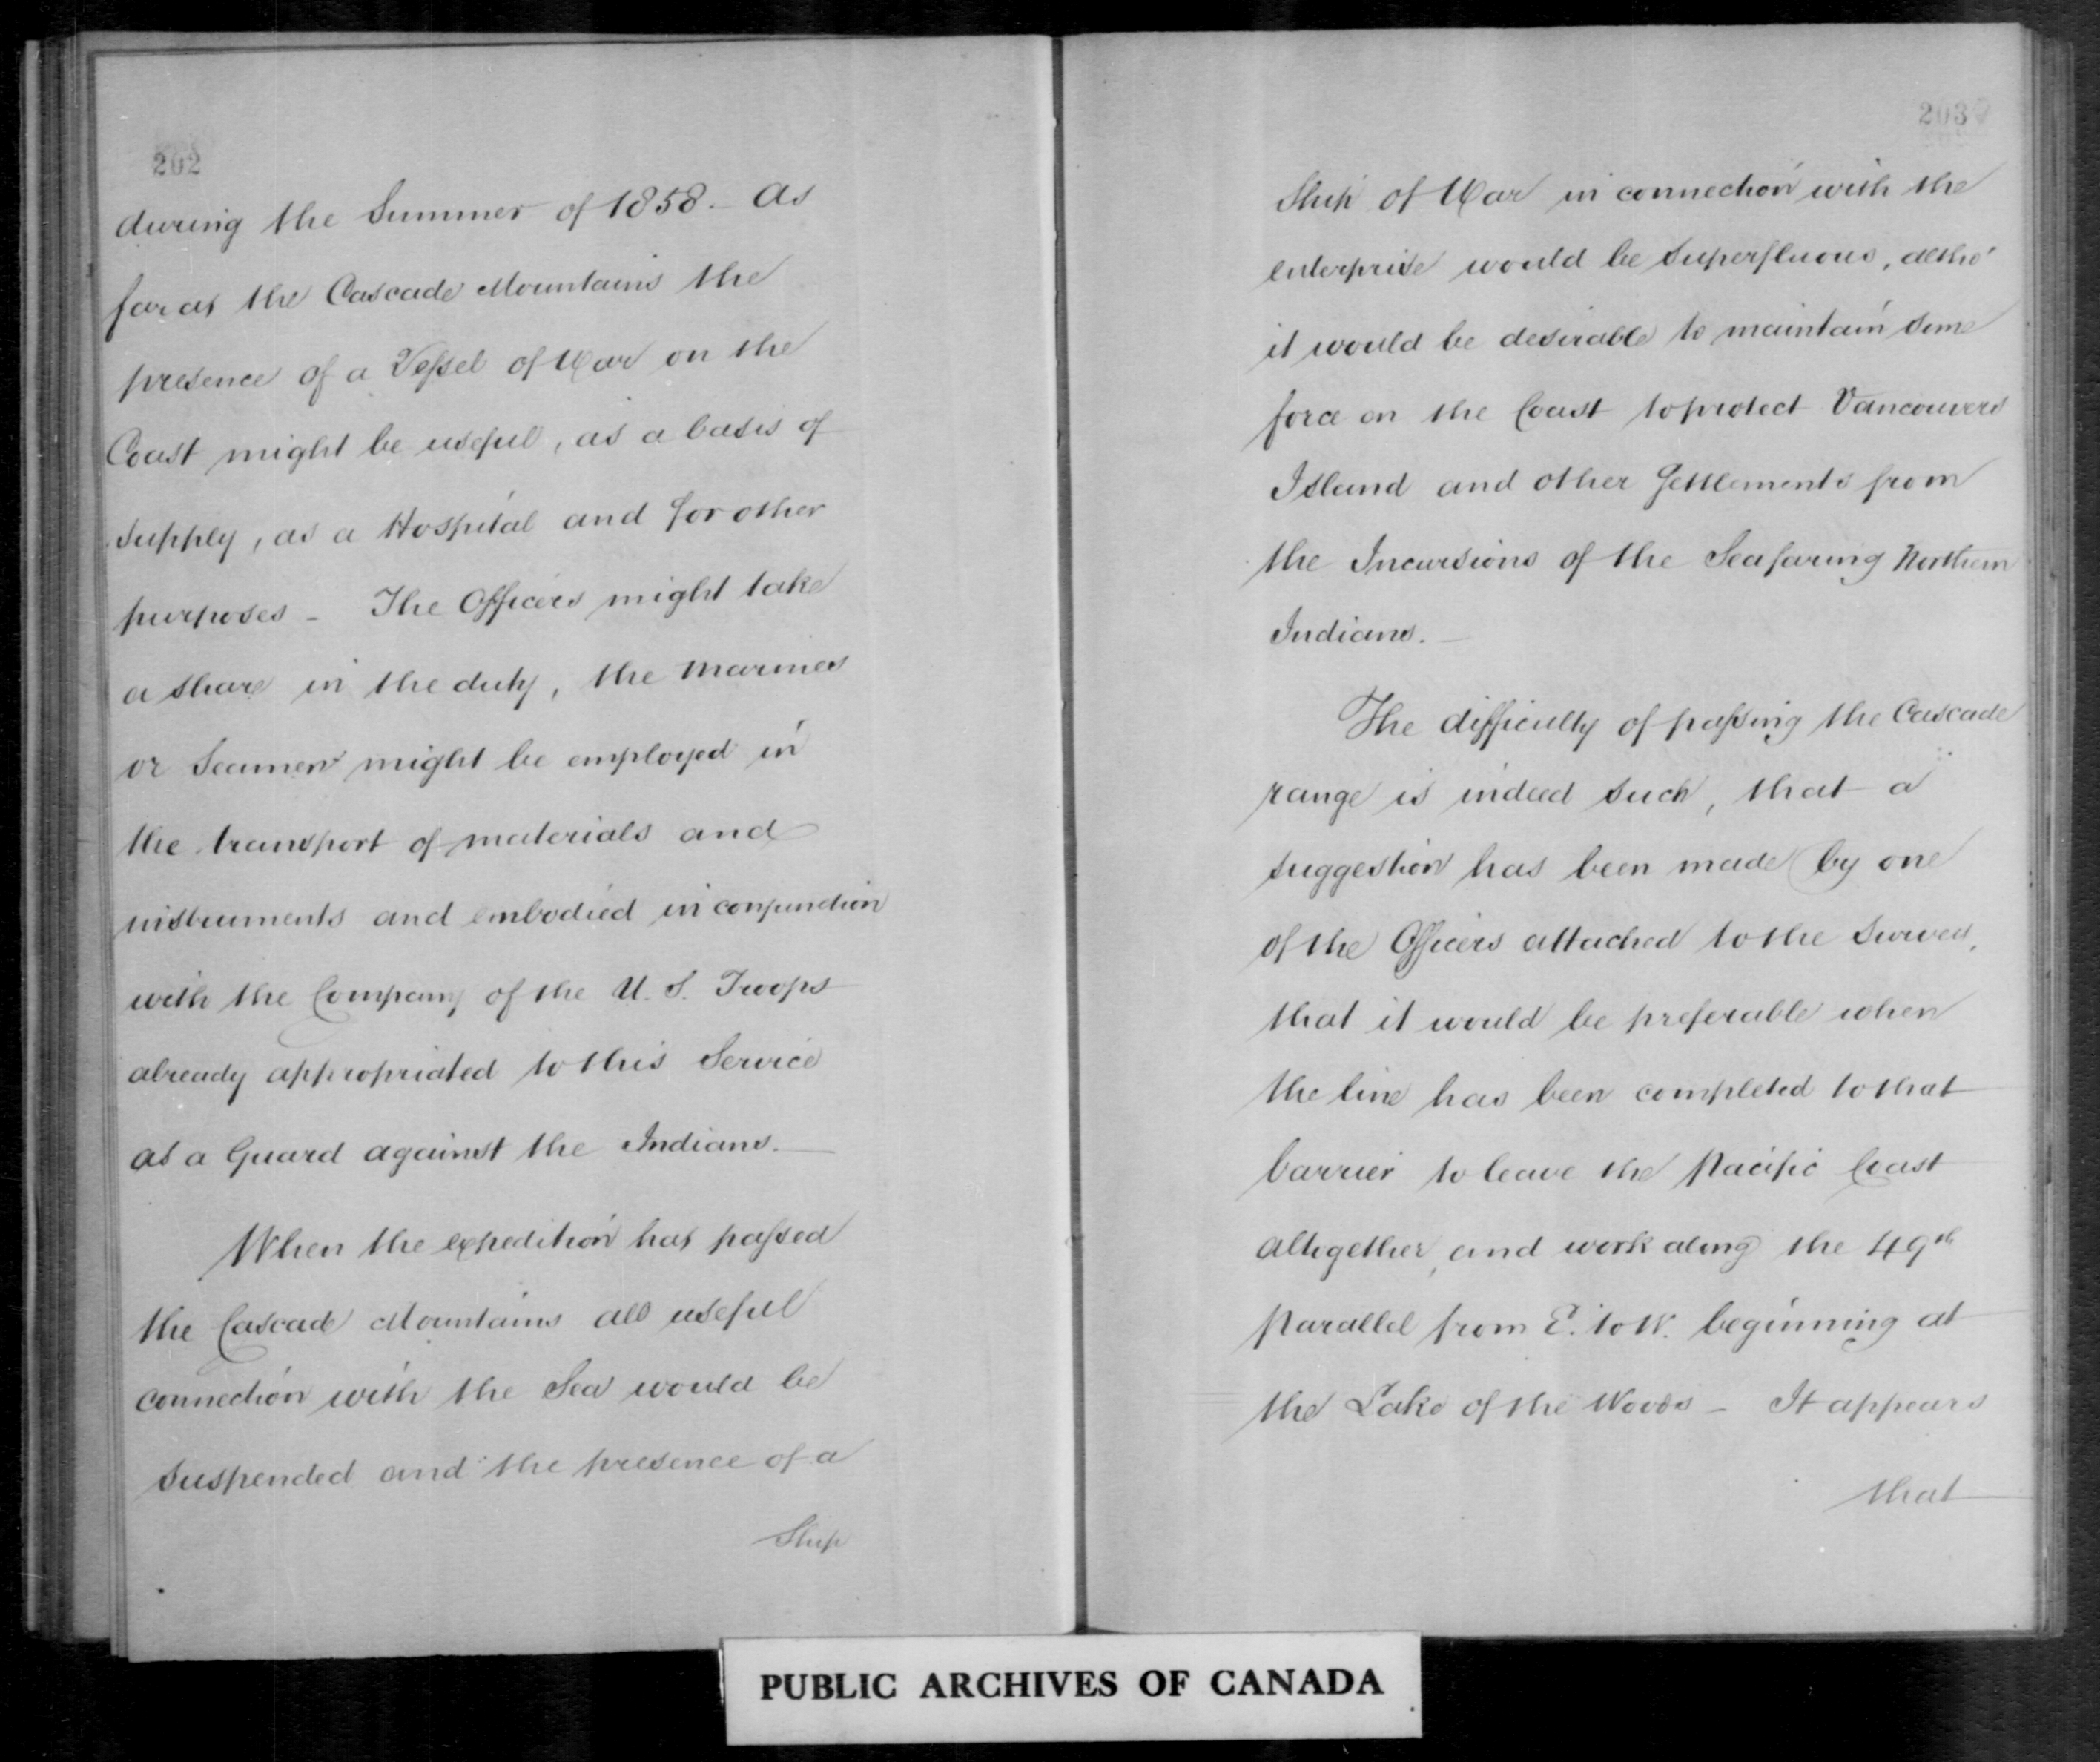 202
during the Summer of 1858. – As
far as the Cascade Mountains the
presence of a Vessel of War on the
Coast might be useful, as a basis of
supply, as a Hospital and for other
purposes – The Officers might take
a share in the duty, the Marines
or Seamen might be employed in
the transport of materials and
instruments and embodied in conjunction
with the Company of the U. S. Troops
already appropriated to this Service
as a Guard against the Indians. —
When the expedition has passed
the Cascade Mountains all useful
connection with the Sea would be
suspended and the presence of a
Ship
203
Ship of War in connection with the
enterprise would be Superfluous, altho'
it would be desirable to maintain some
force on the Coast to protect Vancouvers
Island and other Settlements from
the Incursions of the Seafaring Northern
Indians. —
The difficulty of passing the Cascade
range is indeed such, that a
suggestion has been made by one
of the Officers attached to the Survey,
that it would be preferable when
the line has been completed to that
barrier to leave the Pacific Coast
altogether, and work along the 49th
Parallel from E. to W. beginning at
the Lake of the Woods – It appears
that
PUBLIC ARCHIVES OF CANADA